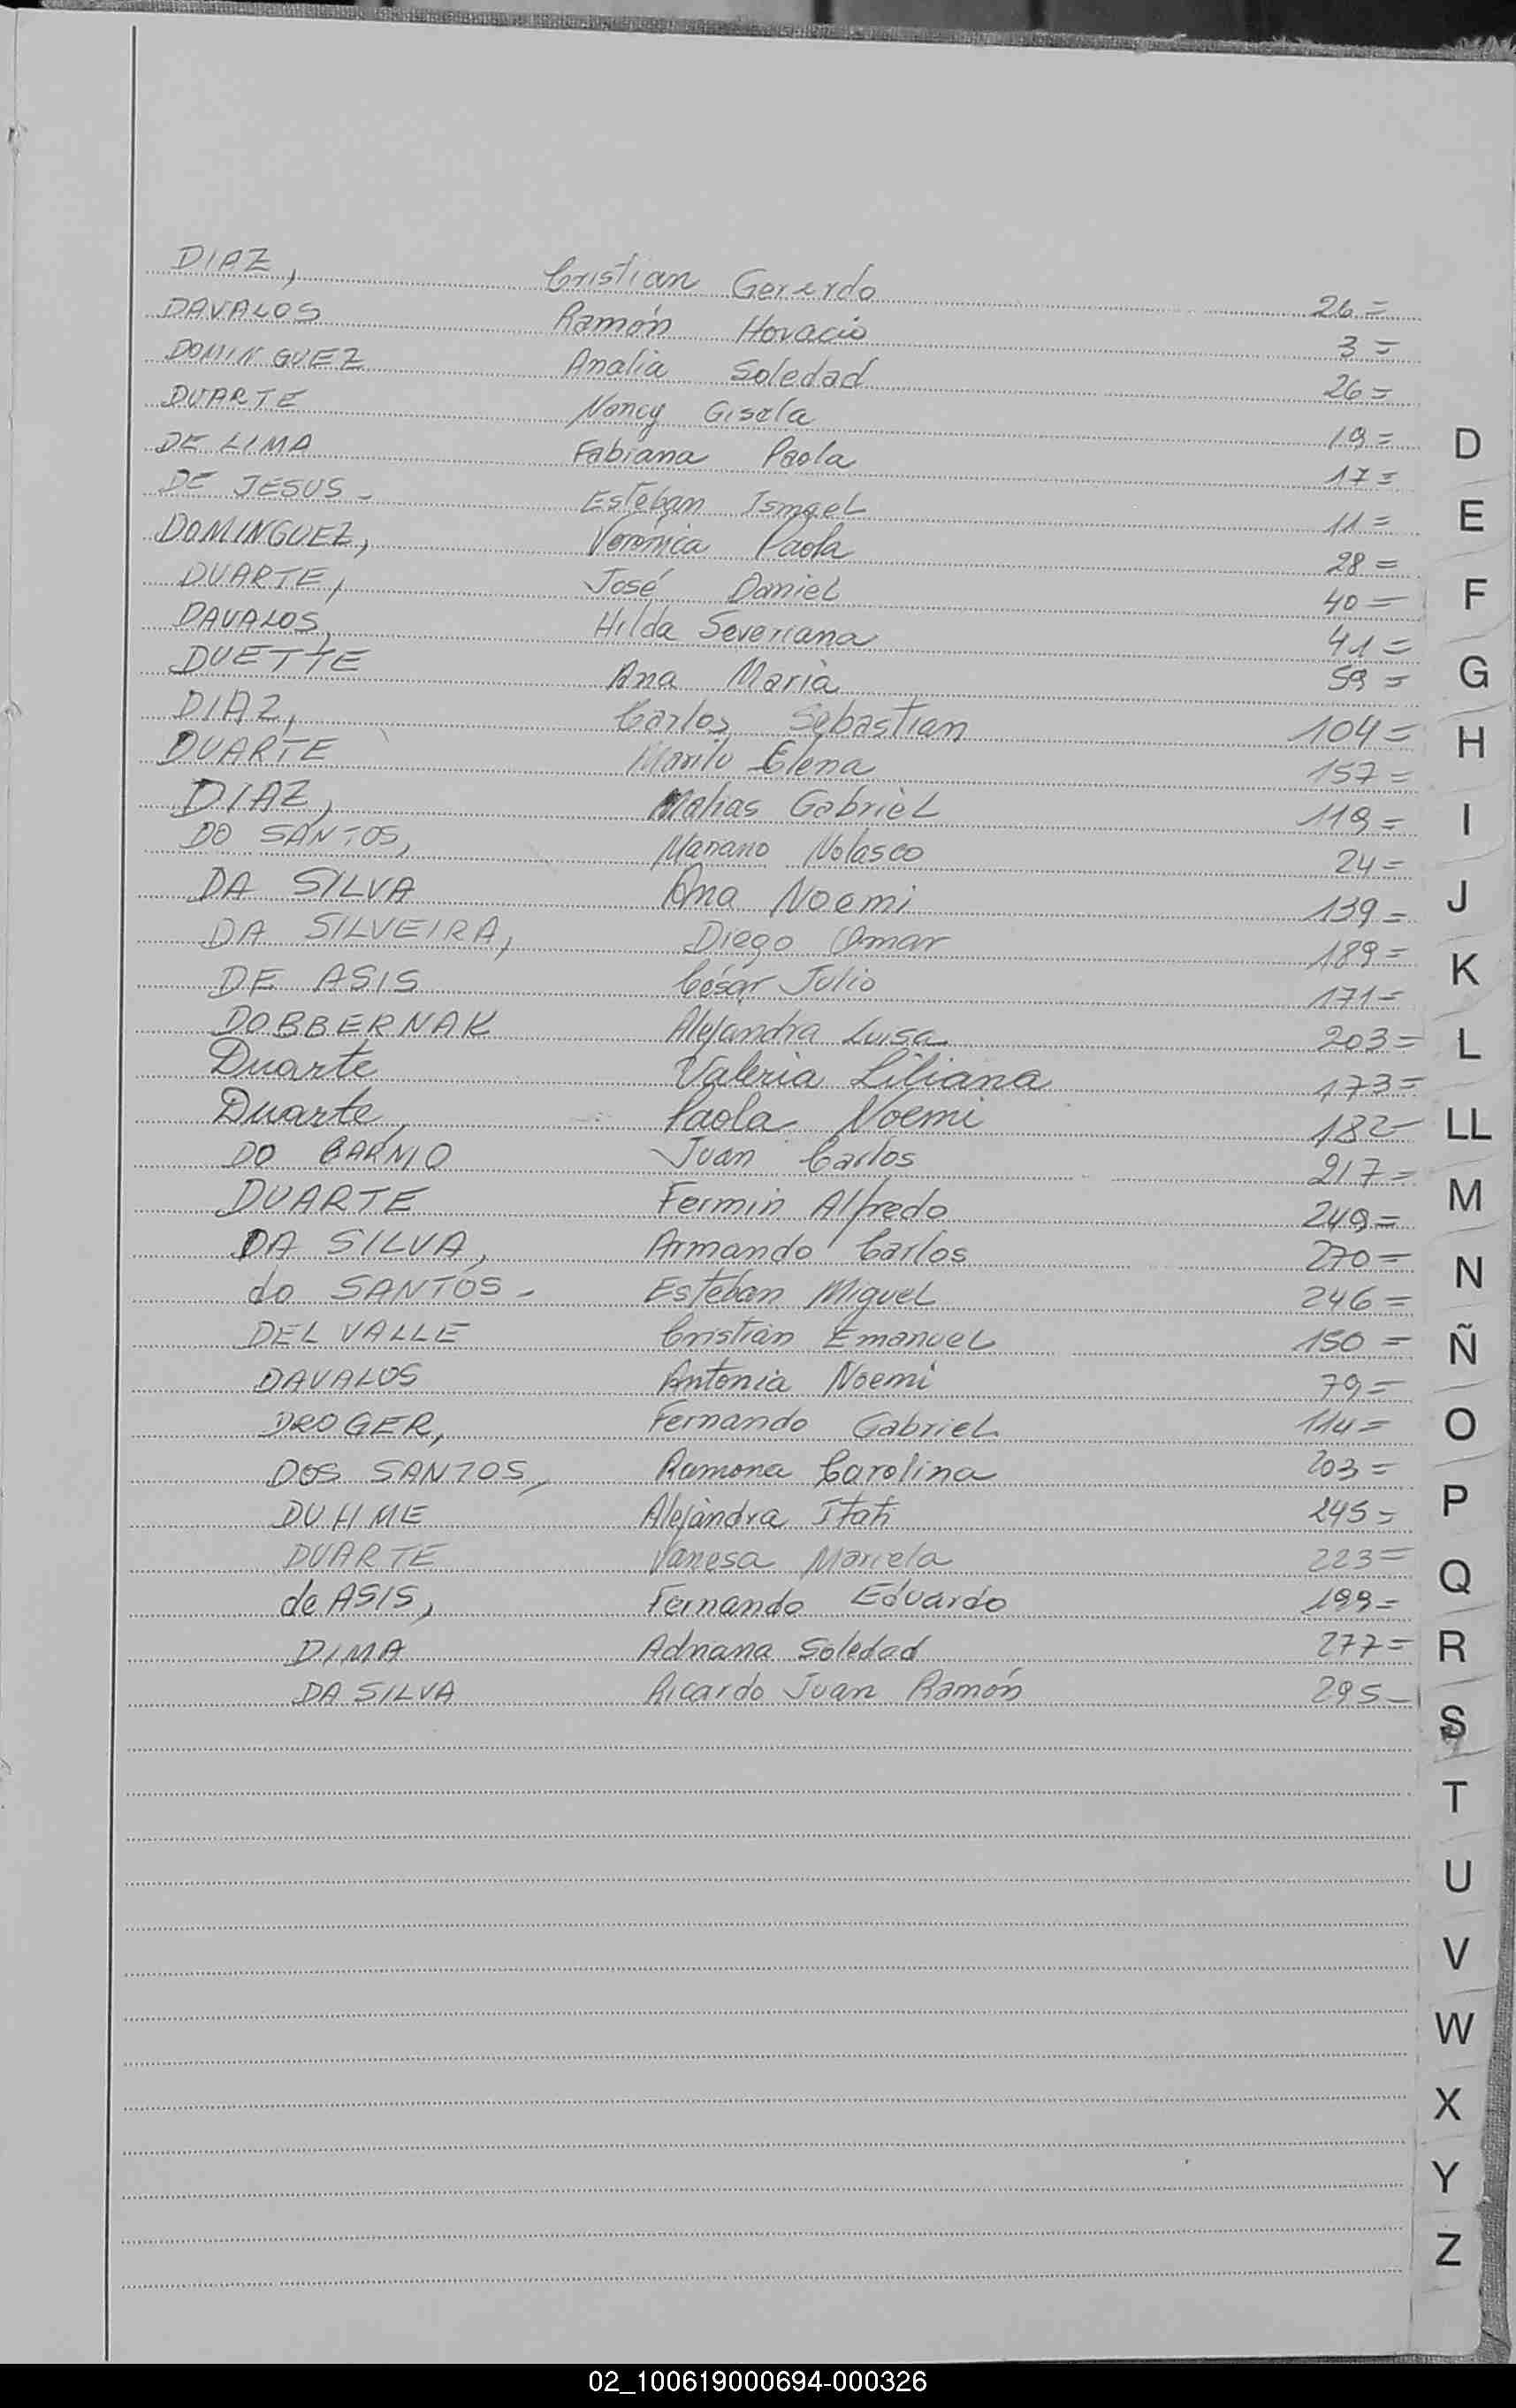 DIAZ, Cristian Gerardo 26=
DAVALOS Ramón Horacio 3=
DOMINGUEZ Analia Soledad 26=
DUARTE Nancy Gisela 19=
DE LIMA Fabiana Paola 17=
DE JESUS - Esteban Ismael 11=
DOMINGUEZ, Veronica Paola 28=
DUARTE, José Daniel 40=
DAVALOS, Hilda Severiana 41=
DUETTE Ana Maria 59=
DIAZ, Carlos Sebastian 104=
DUARTE Marilu Elena 157=
DIAZ, Matias Gabriel 119=
DO SANTOS, Mariano Nolasco 24=
DA SILVA Ana Noemi 139=
DA SILVEIRA, Diego Omar 189=
DE ASIS César Julio 171=
DOBBERNAK Alejandra Luisa 203=
Duarte Valeria Liliana 173=
Duarte, Paola Noemi 182-
DO Juan Carlos 217=
DUARTE Fermin Alfredo 249=
DA SILVA, Armando Carlos 270=
do SANTOS - Esteban Miguel 246=
DEL VALLE Cristian Emanuel 150=
DAVALOS Antonia Noemi 79=
DROGER, Fernando Gabriel 114=
DOS SANTOS, Ramona Carolina 203=
DUHME Alejandra Itati 245=
DUARTE Vanesa Marcela 223=
de ASIS, Fernando Eduardo 199=
DIMA Adriana Soledad 277=
DA SILVA Ricardo Juan Ramón 295-
D
E
F
G
H
I
J
K
L
LL
M
N
Ñ
O
P
Q
R
S
T
U
V
W
X
Y
Z
02_100619000694-000326